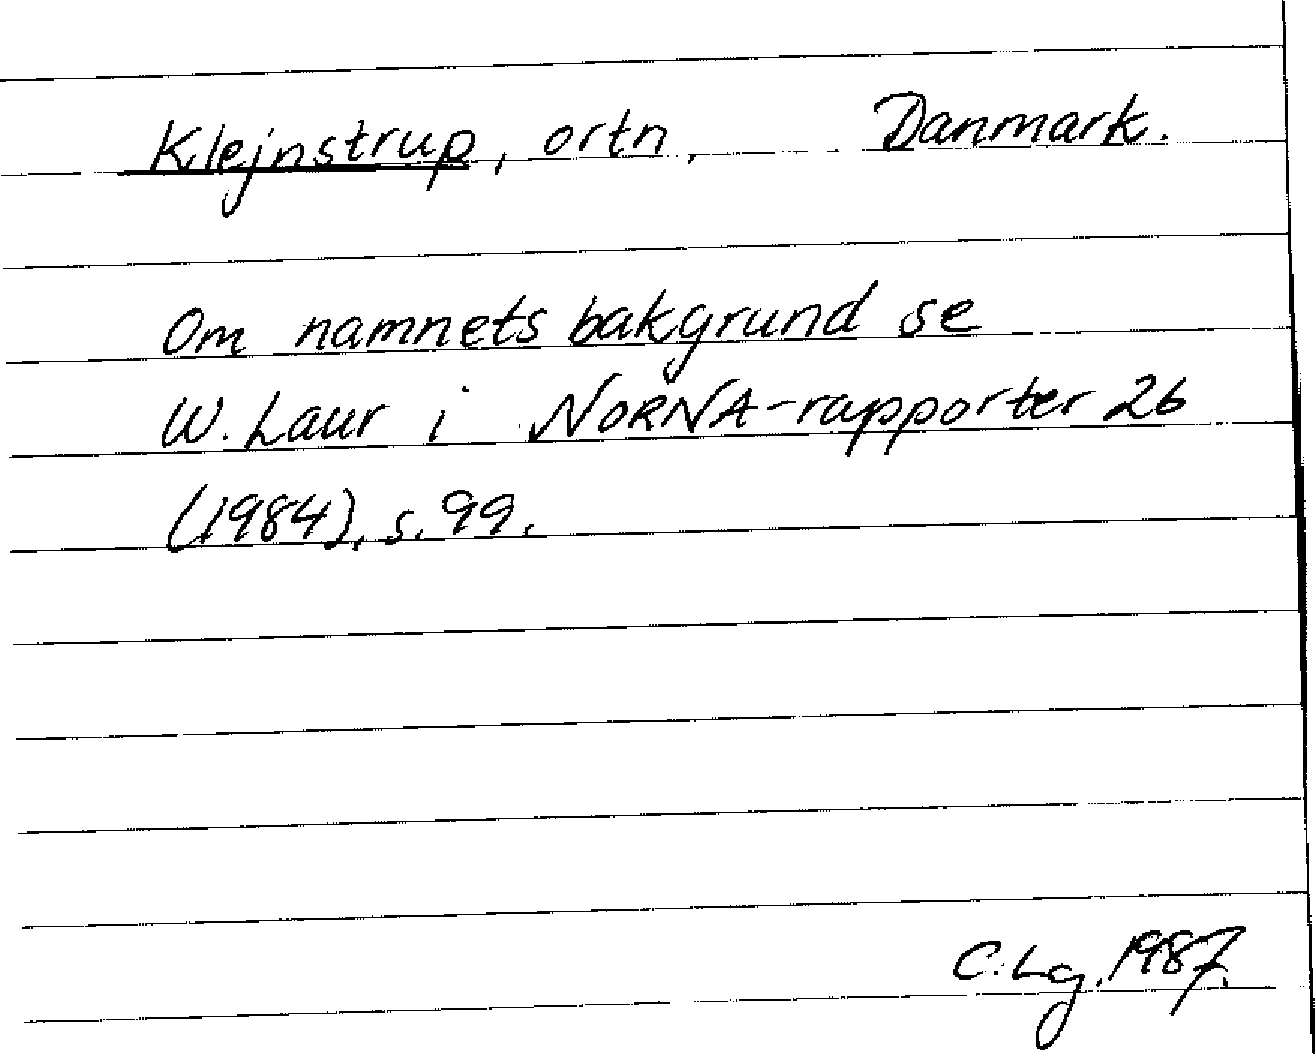 Klejnstrup, ortn, Danmark.
Om namnets bakgrund se
W. Laur i NORNA-rapporter 26
(1984), s. 99.
C. Lg. 1987.